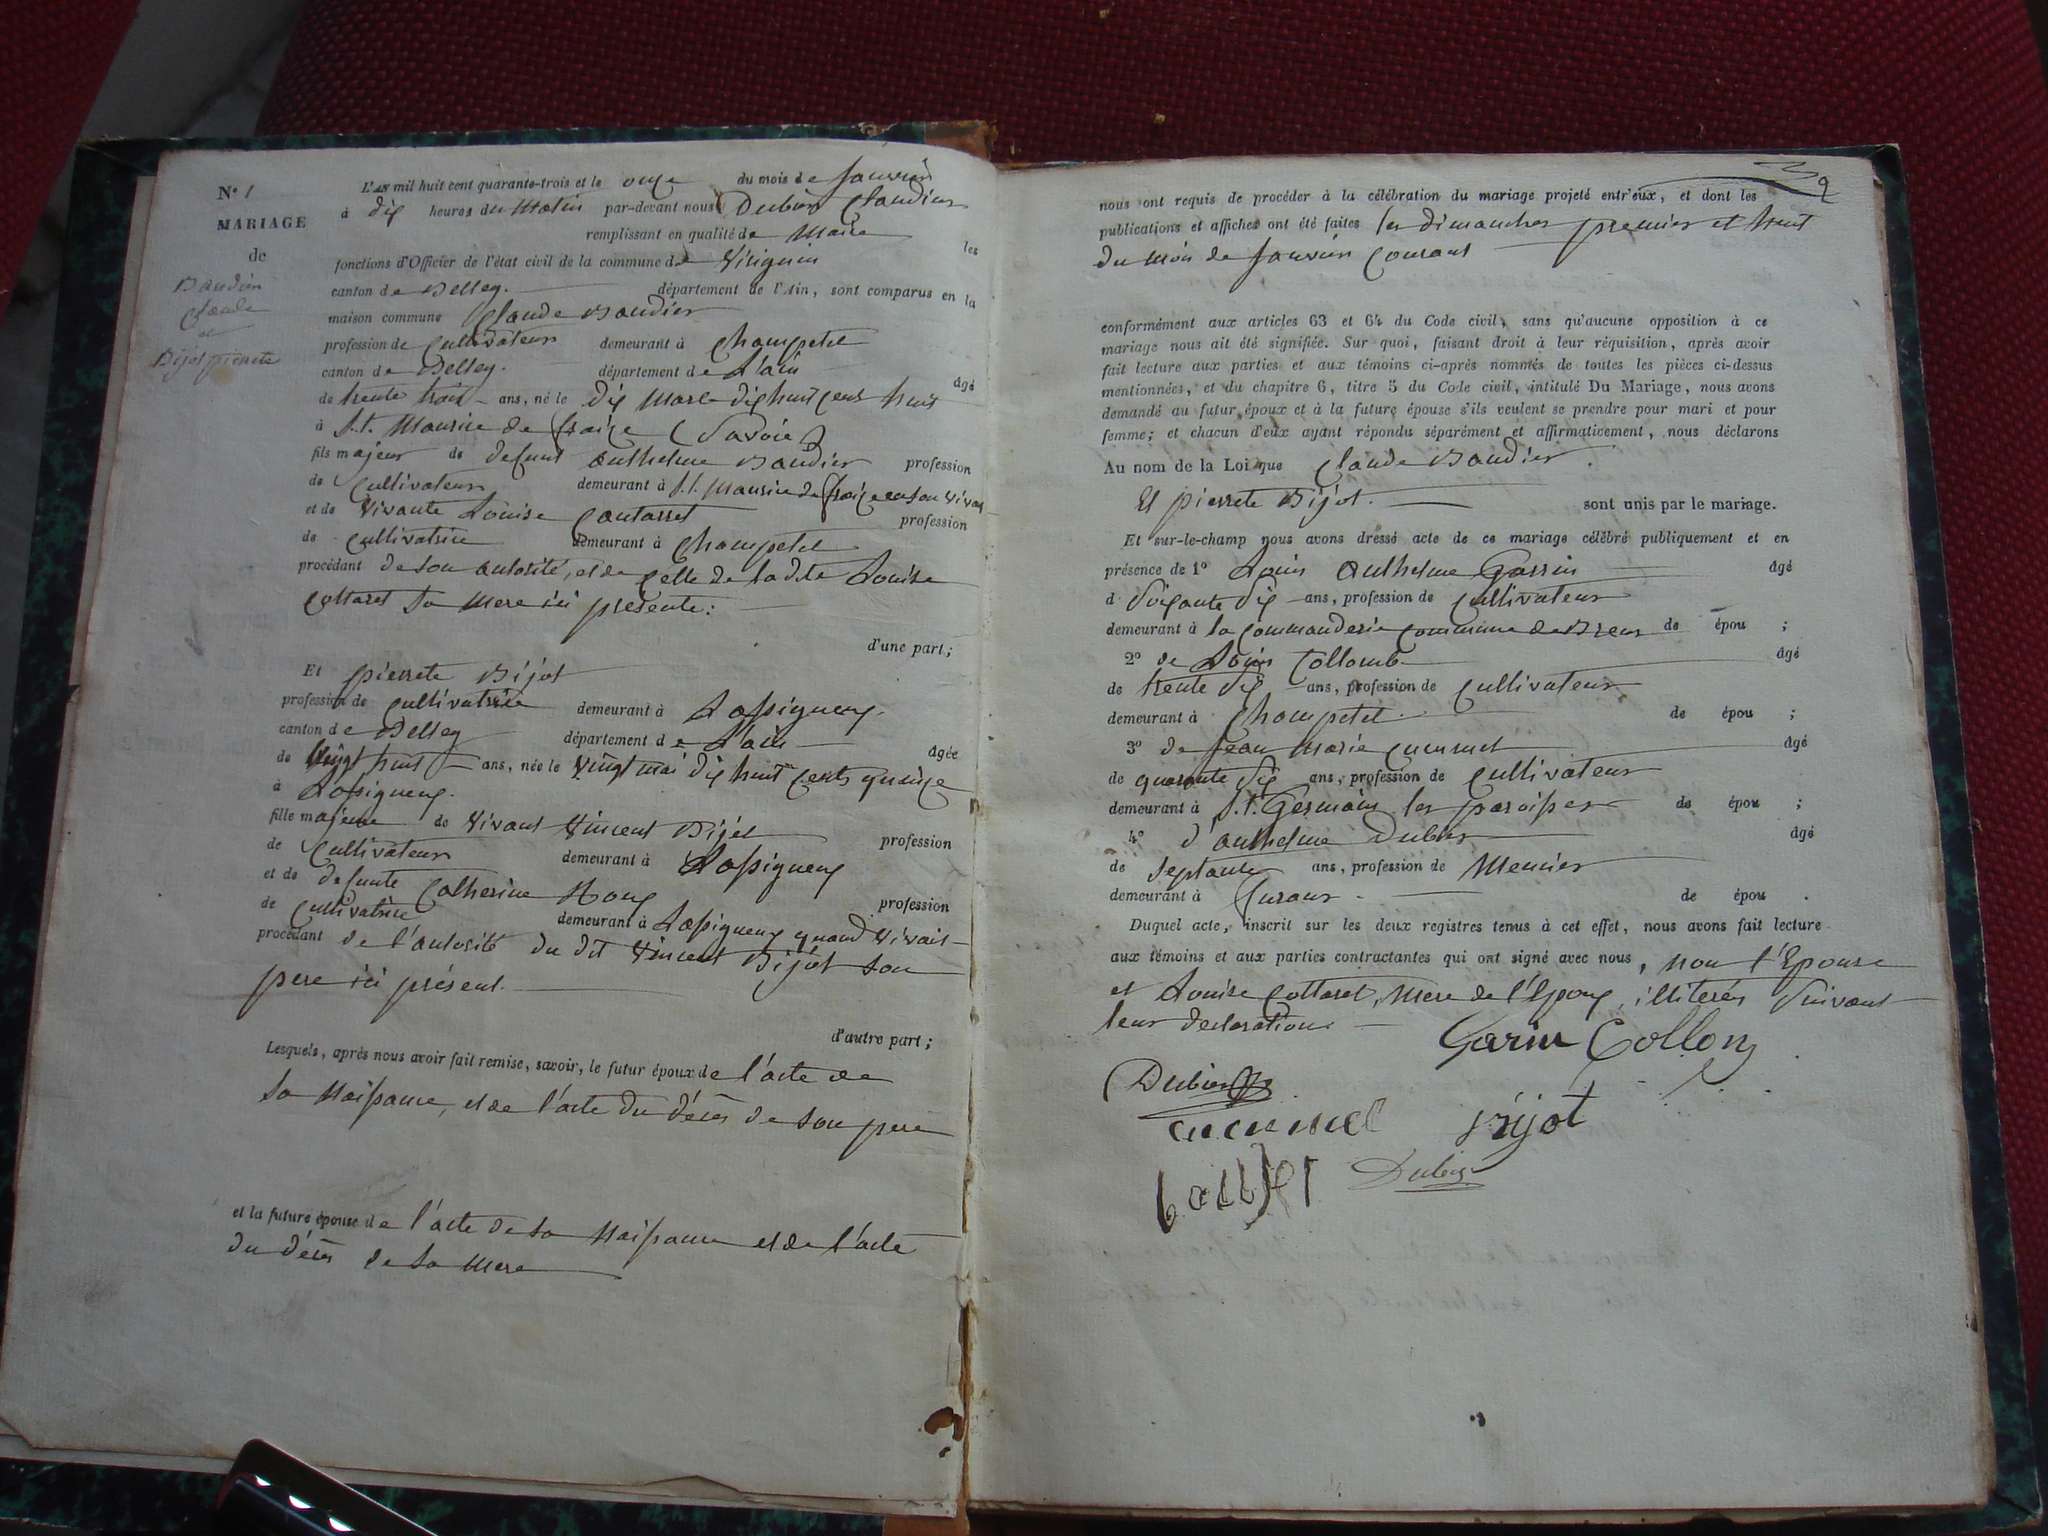 N° 1
MARIAGE
de
Baudier
Claude
et
Bijot pierrete
L'AN mil huit cent quarante-trois et le onze du mois de Janvier
à dix heures du Matin par-devant nous Dubier Claudius
remplissant en qualité de Maire les
fonctions d'Officier de l'état civil de la commune de Virignin
canton de Belley. département de l'Ain, sont comparus en la
maison commune Claude Baudier
profession de Cultivateur demeurant à Champetel
canton de Belley. département de L'ain âgé
de trente trois ans, né le dix Mars dix huit cent huit
à St. Maurice de (Savoie)
fils majeur de defunt Anthelme Baudier profession
de Cultivateur demeurant à St. Maurice de en son vivant
et de vivante Louise Contarret profession
de Cultivatrice demeurant à Champetel
procédant de son autorité, et de Celle de la dite Louise
Cottaret sa Mere ici presente:
d'une part;
Et pierrete Bijot
profession de Cultivatrice demeurant à Rossigneux.
canton de Belley département de L'ain âgée
de Vingt huit ans, née le vingt mai dix huit cents quinze
à Rossigneux.
fille majeure de vivant Vincent Bijot profession
de Cultivateur demeurant à Rossigneux
et de defunte Catherine Roux profession
de Cultivatrice demeurant à Rossigneux quand vivait
procédant de l'autorité du dit Vincent Bijot son
pere ici présent.
d'autre part;
Lesquels, après nous avoir fait remise, savoir, le futur époux de l'acte de
sa Naissance, et de l'acte du décès de son pere
et la future épouse de l'acte de sa Naissance et de l'acte
du décès de sa Mere
nous ont requis de procéder à la célébration du mariage projeté entr'eux, et dont les
publications et affiches ont été faites les dimanches premier et huit
du mois de Janvier Courant
conformément aux articles 63 et 64 du Code civil, sans qu'aucune opposition à ce
mariage nous ait été signifiée. Sur quoi, faisant droit à leur réquisition, après avoir
fait lecture aux parties et aux témoins ci-après nommés de toutes les pièces ci-dessus
mentionnées, et du chapitre 6, titre 5 du Code civil, intitulé Du Mariage, nous avons
demandé au futur époux et à la future épouse s'ils veulent se prendre pour mari et pour
femme; et chacun d'eux ayant répondu séparément et affirmativement, nous déclarons
Au nom de la Loi que Claude Baudier
Et pierrete Bijot. sont unis par le mariage.
Et sur-le-champ nous avons dressé acte de ce mariage célébré publiquement et en
présence de 1° Louis Anthelme Garrin âgé
d soixante dix ans, profession de Cultivateur
demeurant à la Commanderie Commune de Brens de épou ;
2° de Louis Collomb âgé
de trente dix ans, profession de Cultivateur
demeurant à Champetel. de épou ;
3° de Jean Marie Cucurnel âgé
de quarante dix ans, profession de Cultivateur
demeurant à St. Germain les paroisses de épou ;
4° d'Anthelme Dubier âgé
de Septante ans, profession de Meunier
demeurant à de épou .
Duquel acte, inscrit sur les deux registres tenus à cet effet, nous avons fait lecture
aux témoins et aux parties contractantes qui ont signé avec nous, non l'Epouse
et Louise Cottaret, Mere de l'Epoux, illiterés suivant
leur declaration.
Garin Collon
Dubier
Bijot
Dubier